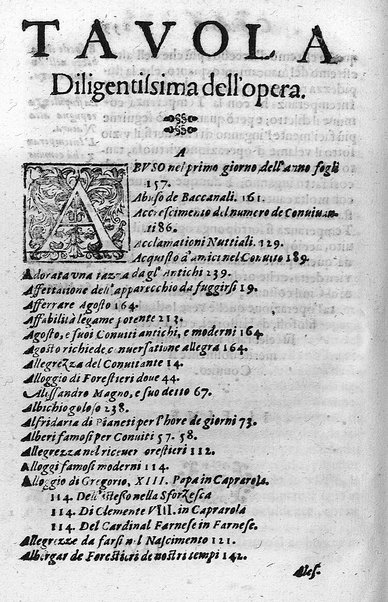 TAVOLA
Diligentissima dell'opera.
A
ABVSO nel primo giorno dell'anno fogli
157.
Abuso de Baccanali. 161.
Accrescimento del numero de Conuiuan
ti 86.
Acclamationi Nuttiali. 129.
Acquisto d'amici nel Conuito 189.
Adorata vna tazza dagl' Antichi 239.
Affettatione dell'apparecchio da fuggirsi 19.
Afferrare Agosto 164.
Affabilità legame potente 213.
Agosto, e suoi Conuiti antichi, e moderni 164.
Agosto richiede conuersatione allegra 164.
Allegrezza del Conuitante 14.
Alloggio di Forestieri doue 44.
Alessandro Magno, e suo detto 67.
Albichio goloso 238.
Alfridaria di Pianeti per l'hore de giorni 73.
Alberi famosi per Conuiti 57. 58.
Allegrezza nel riceuer forestieri 112.
Alloggi famosi moderni 114.
Alloggio di Gregorio, XIII. Papa in Caprarola.
114. Dell'istesso nella Sforzesca
114. Di Clemente VIII. in Caprarola
114. Del Cardinal Farnese in Farnese.
Allegrezze da farsi nel Nascimento 121.
Albergar de Forestieri de nostri tempi 142.
Ales.